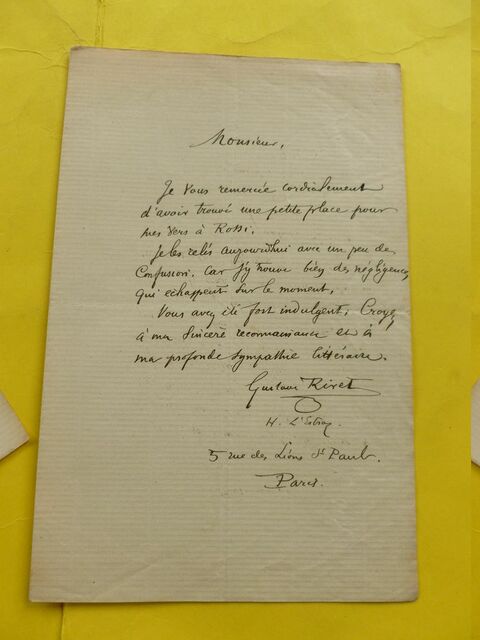 Monsieur,
Je vous remercie cordialement
d'avoir trouvé une petite place pour
mes vers à Rossi.
Je les relis aujourd'hui avec un peu de
Confusion. Car j'y trouve bien des négligences
qui échappent sur le moment.
Vous avez été fort indulgent. Croyez
à ma sincère reconnaissance et à
ma profonde sympathie littéraire.
Gustave Rivet
H.
5 rue des Lions St Paul.
Paris.